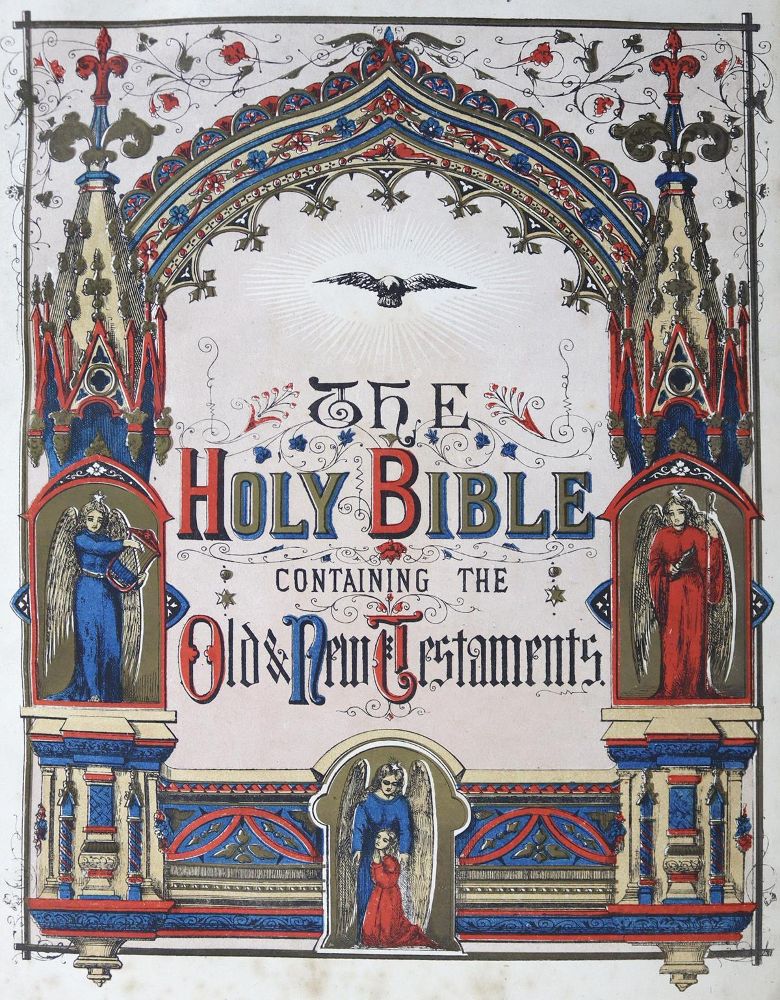 The
Holy Bible
CONTAINING THE
Old & New Testaments.